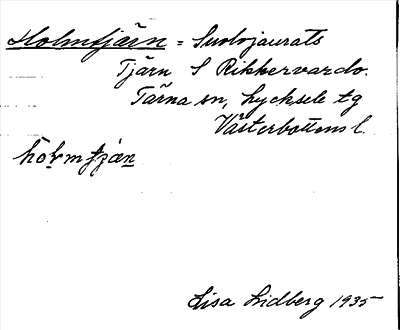 Holmtjärn = Suolojaurats
Tjärn S Rikkervardo.
Tärna sn, Lycksele tg
Västerbottens l.
hòḷmtjàn
Lisa Lidberg 1935